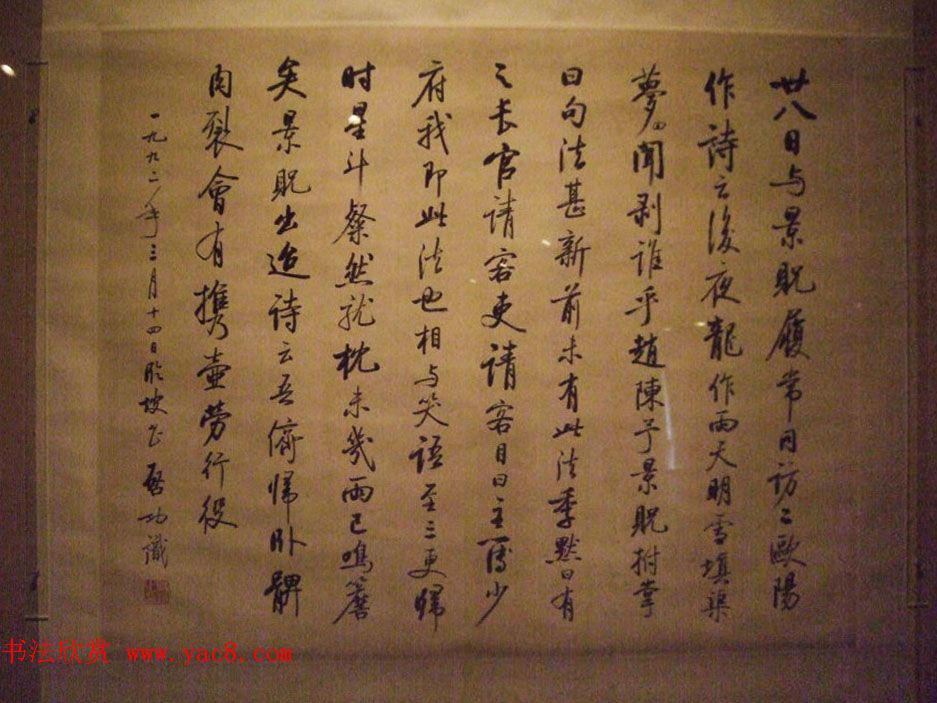 廿八日与景貺履常同访二歐陽
作詩云後夜龍作雨天明雪填渠
夢回聞剥誰乎趙陳予景貺拊掌
曰句法甚新前未有此法季默曰有
之长官請客吏請客目曰主簿少
府我即此法也相与笑语至三更歸
时星斗粲然就枕未幾而雨已鳴簷
矣景貺出迨诗云吾儕歸卧髀
肉裂會有携壶劳行役
一九九二年三月十四日临坡书 启功識
书法欣赏 www.yac8.com